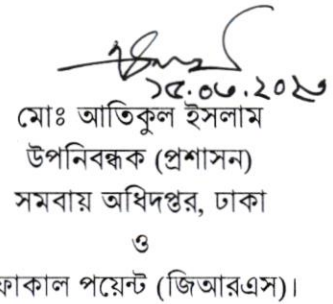 মোঃ আতিকুল ইসলাম
উপনিবন্ধক (প্রশাসন)
সমবায় অধিদপ্তর, ঢাকা
ও
ফোকাল পয়েন্ট (জিআরএস)।